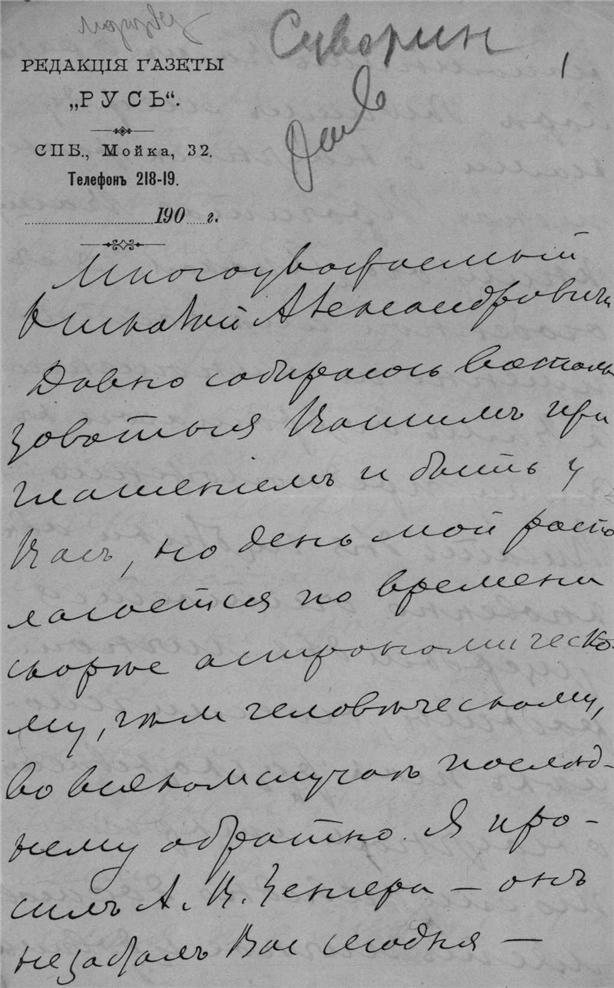 Суворин
1
РЕДАКЦІЯ ГАЗЕТЫ
„РУСЬ“.
СПБ., Мойка, 32.
Телефонъ 218-19.
190 г.
Многоуважаемый
Александровичъ
Давно собираюсь восполь
зоваться Вашимъ при
глашеніемъ и быть у
Васъ, но день мой распо
лагается по времени
скорѣе астрономическо-
му, чѣм человѣческому,
во всяком случаѣ послѣд-
нему обратно. Я про-
силъ А. В.
не забылъ Вас сегодня —